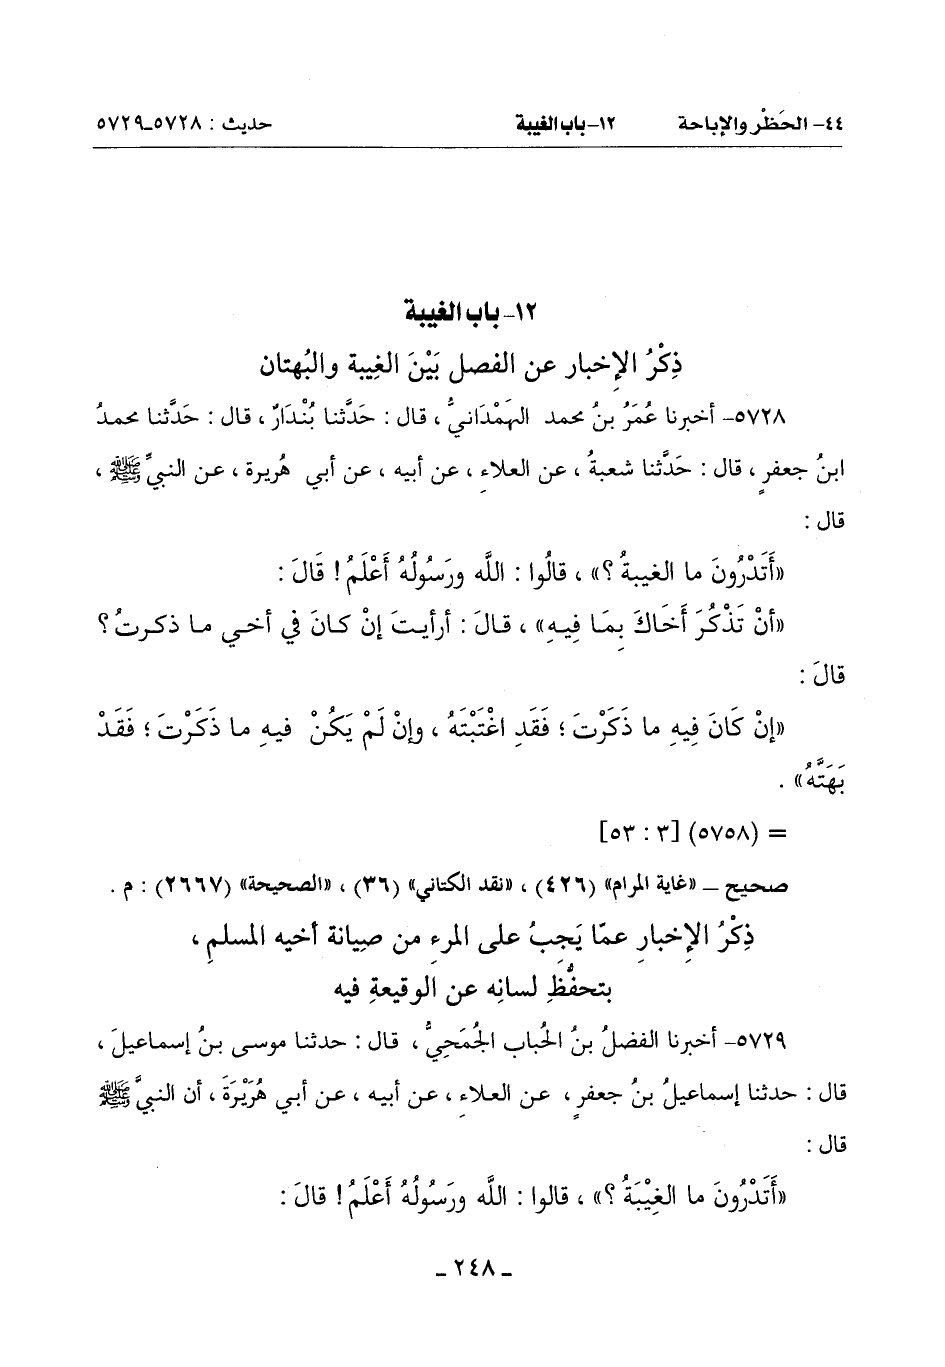 ٤٤- الحَظْر والإباحة ١٢- باب الغيبة حديث : ٥٧٢٨ـ٥٧٢٩
١٢- باب الغيبة
ذِكْرُ الإخبار عن الفصل بَيْنَ الغِيبة والبُهتان
٥٧٢٨- أخبرنا عُمَرُ بنُ محمد الهَمْدَانيُّ ، قال : حَدَّثنا بُنْدَارٌ ، قال : حَدَّثنا محمدُ
ابنُ جعفرٍ ، قال : حَدَّثنا شعبةُ ، عن العلاءِ ، عن أبيه ، عن أبي هُريرة ، عن النبيِّ ﷺ ،
قال :
«أَتَدْرُونَ ما الغيبةُ ؟» ، قالُوا : اللَّه ورَسُولُهُ أَعْلَمُ ! قَالَ :
«أنْ تَذْكُرَ أَخَاكَ بِمَا فِيهِ» ، قالَ : أرأيتَ إنْ كانَ في أخي ما ذكرتُ ؟
قالَ :
«إنْ كَانَ فِيهِ ما ذَكَرْتَ ؛ فَقَدِ اغْتَبْتَهُ ، وإنْ لَمْ يَكُنْ فيهِ ما ذَكَرْتَ ؛ فَقَدْ
بَهَتَّهُ» .
= (٥٧٥٨) [٣ : ٥٣]
صحيح ــ «غاية المرام» (٤٢٦) ، «نقد الكتاني» (٣٦) ، «الصحيحة» (٢٦٦٧) : م .
ذِكْرُ الإخبارِ عمّا يَجِبُ على المرءِ من صِيانة أخيه المسلمِ ،
بتحفُّظِ لسانِه عن الوقيعةِ فيه
٥٧٢٩- أخبرنا الفضلُ بنُ الحُباب الجُمَحِيُّ ، قال : حدثنا موسى بنُ إسماعيلَ ،
قال : حدثنا إسماعيلُ بنُ جعفرٍ ، عن العلاءِ ، عن أبيه ، عن أبي هُرَيْرَةَ ، أن النبيَّ ﷺ
قال :
«أَتَدْرُونَ ما الغِيْبَةُ ؟» ، قالوا : اللَّه ورَسُولُهُ أَعْلَمُ ! قالَ :
ـ ٢٤٨ ـ